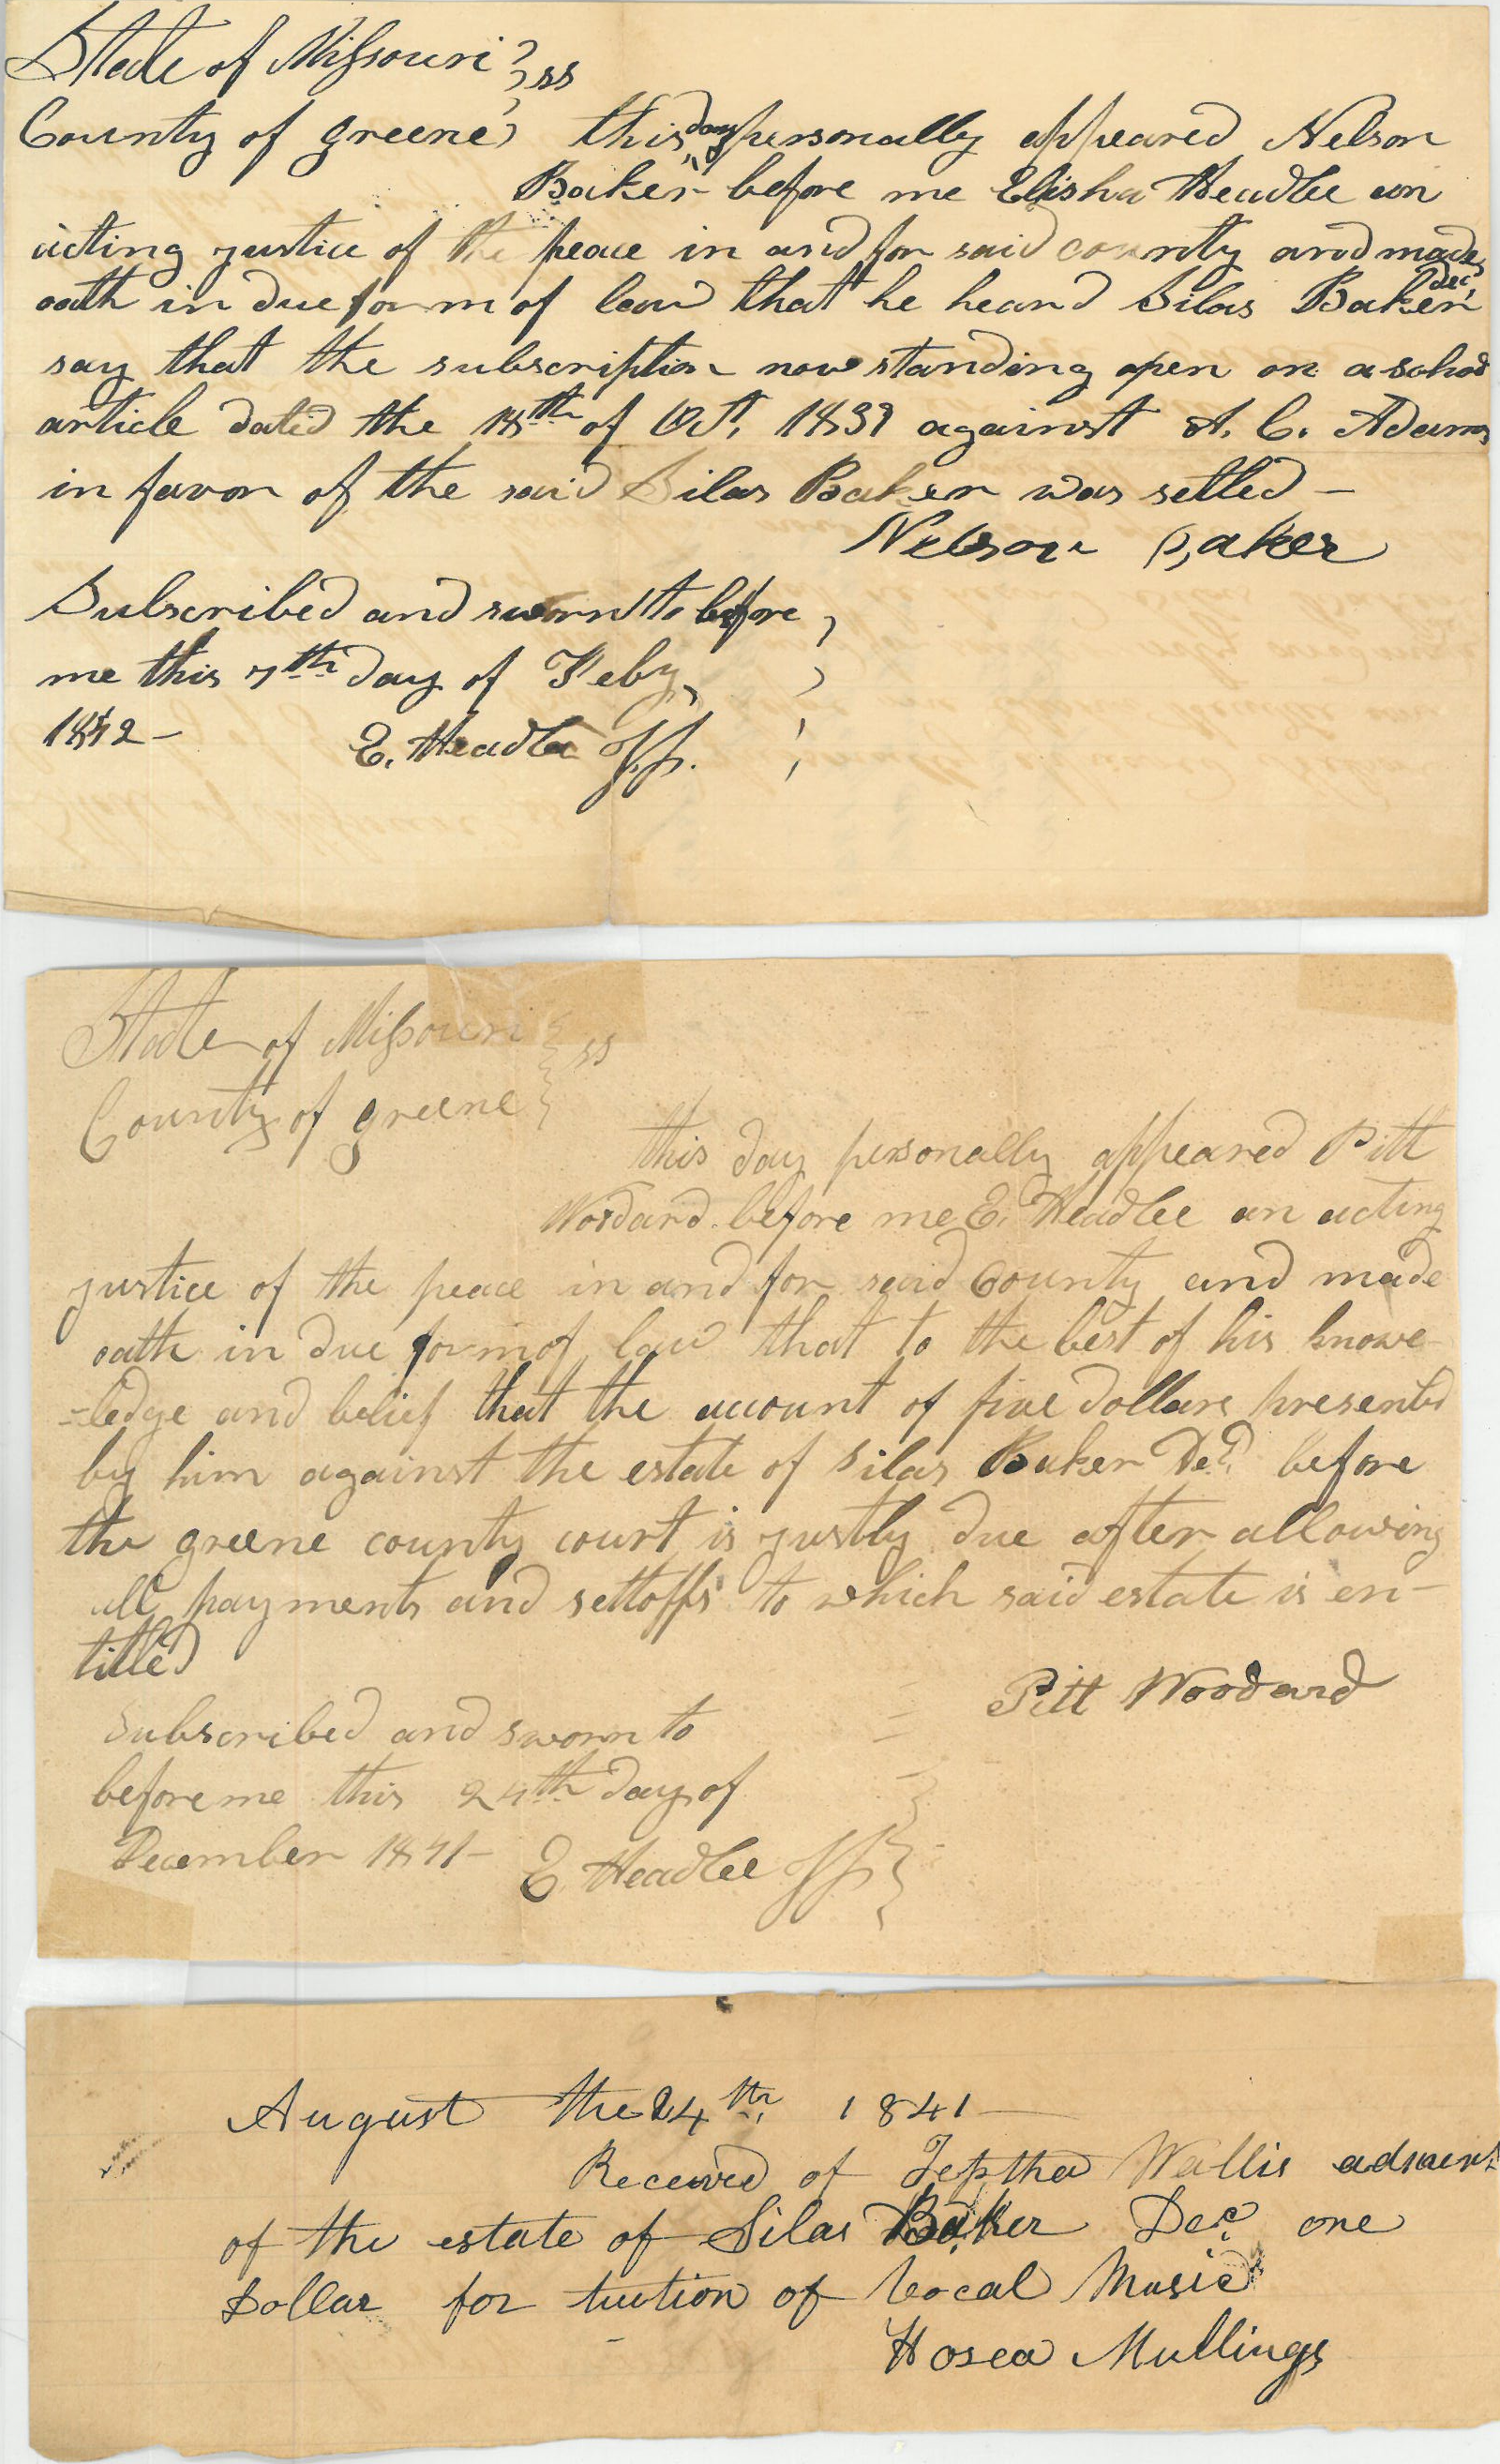 State of Missouri } ss
County of Greene } this day personally appeared Nelson
Baker before me Elisha Headlee an
acting justice of the peace in and for said county and made
oath in due form of law that he heard Silas Baker dec,
say that the subscription now standing open on a school
article dated the 18th of Oct. 1839 against A. C. Adams
in favor of the said Silas Baker was setled –
Nelson Baker
Subscribed and sworn to before
me this 7th day of Feby,
1842 – E. Headlee JP.
State of Missouri } ss
County of greene }
this day personally appeared Pitt
Woodard before me E. Headlee an acting
justice of the peace in and for said County and made
oath in due form of law that to the best of his knowe-
-ledge and belief that the account of five dollars presented
by him against the estate of Silas Baker Decd. before
the greene county court is justly due after allowing
all payments and settoffs to which said estate is en-
titled
Pitt Woodard
Subscribed and sworn to
before me this 24th day of
December 1841 – E Headlee JP
August the 24th, 1841 –
Received of Jeptha Wallis admins
of the estate of Silas Baker Dec. one
Dollar for tuition of Vocal Music
Hosea Mullings